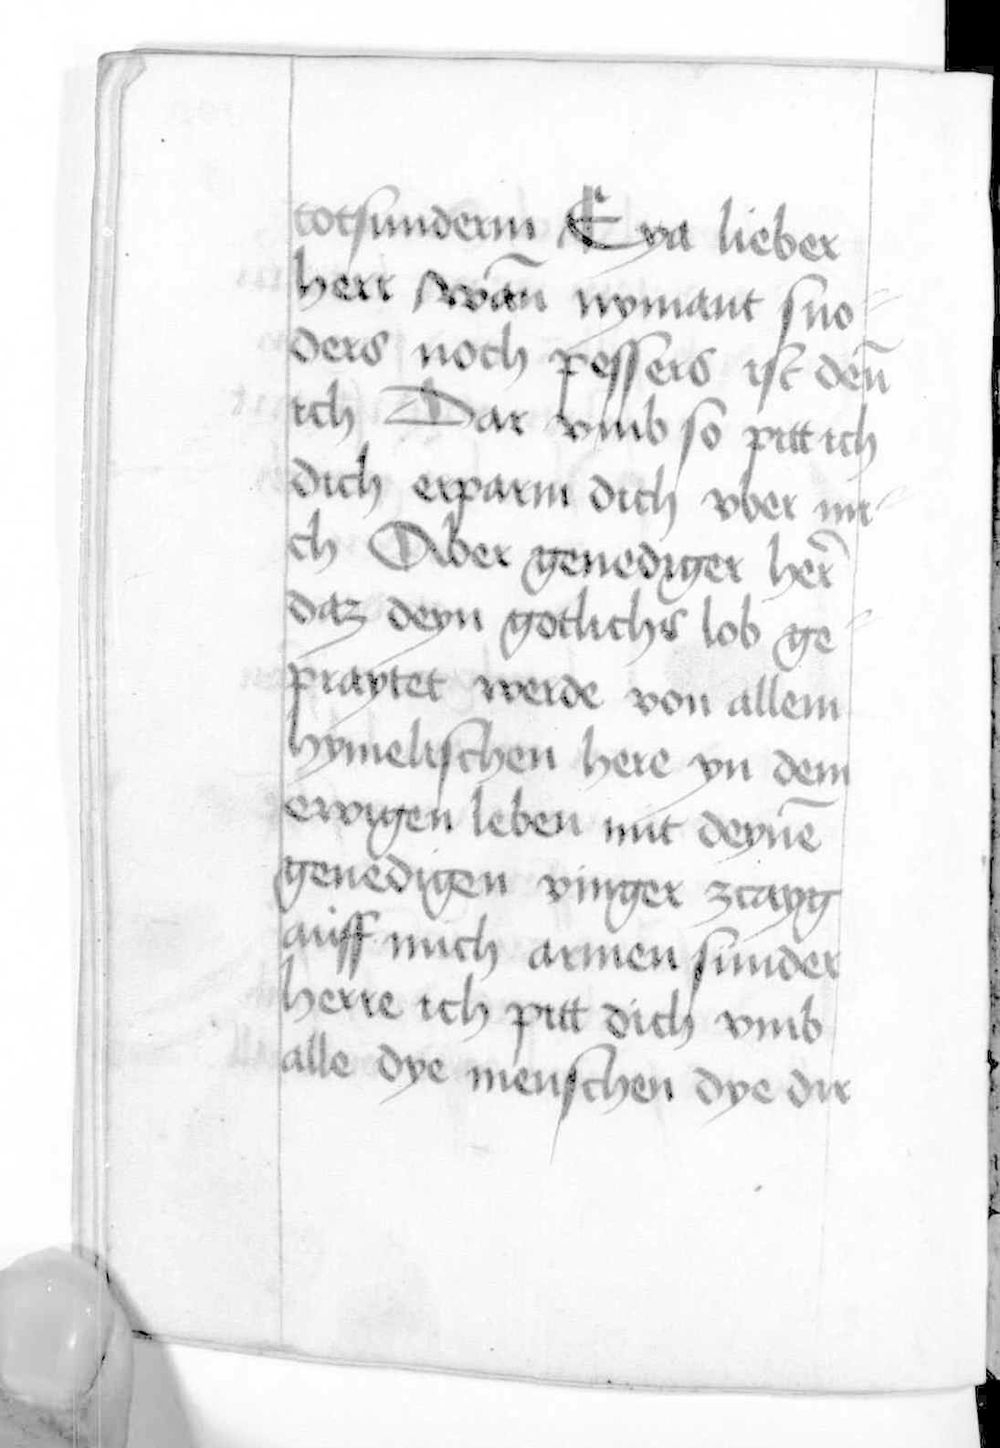 totsunderin Eya lieber
herr wan̄ nymant sno⸗
ders noch pessers ist den̄
ich Dar vmb so pitt ich
dich erparm dich vber mi⸗
ch Aber genediger her̄
daz deyn gotlichs lob ge⸗
praytet werde von allem
hymelischen here yn dem
ewigen leben mit deyne̅
genedigen vinger zcayg
auff mich armen sunder
herre ich pitt dich vmb
alle dye menschen dye dir